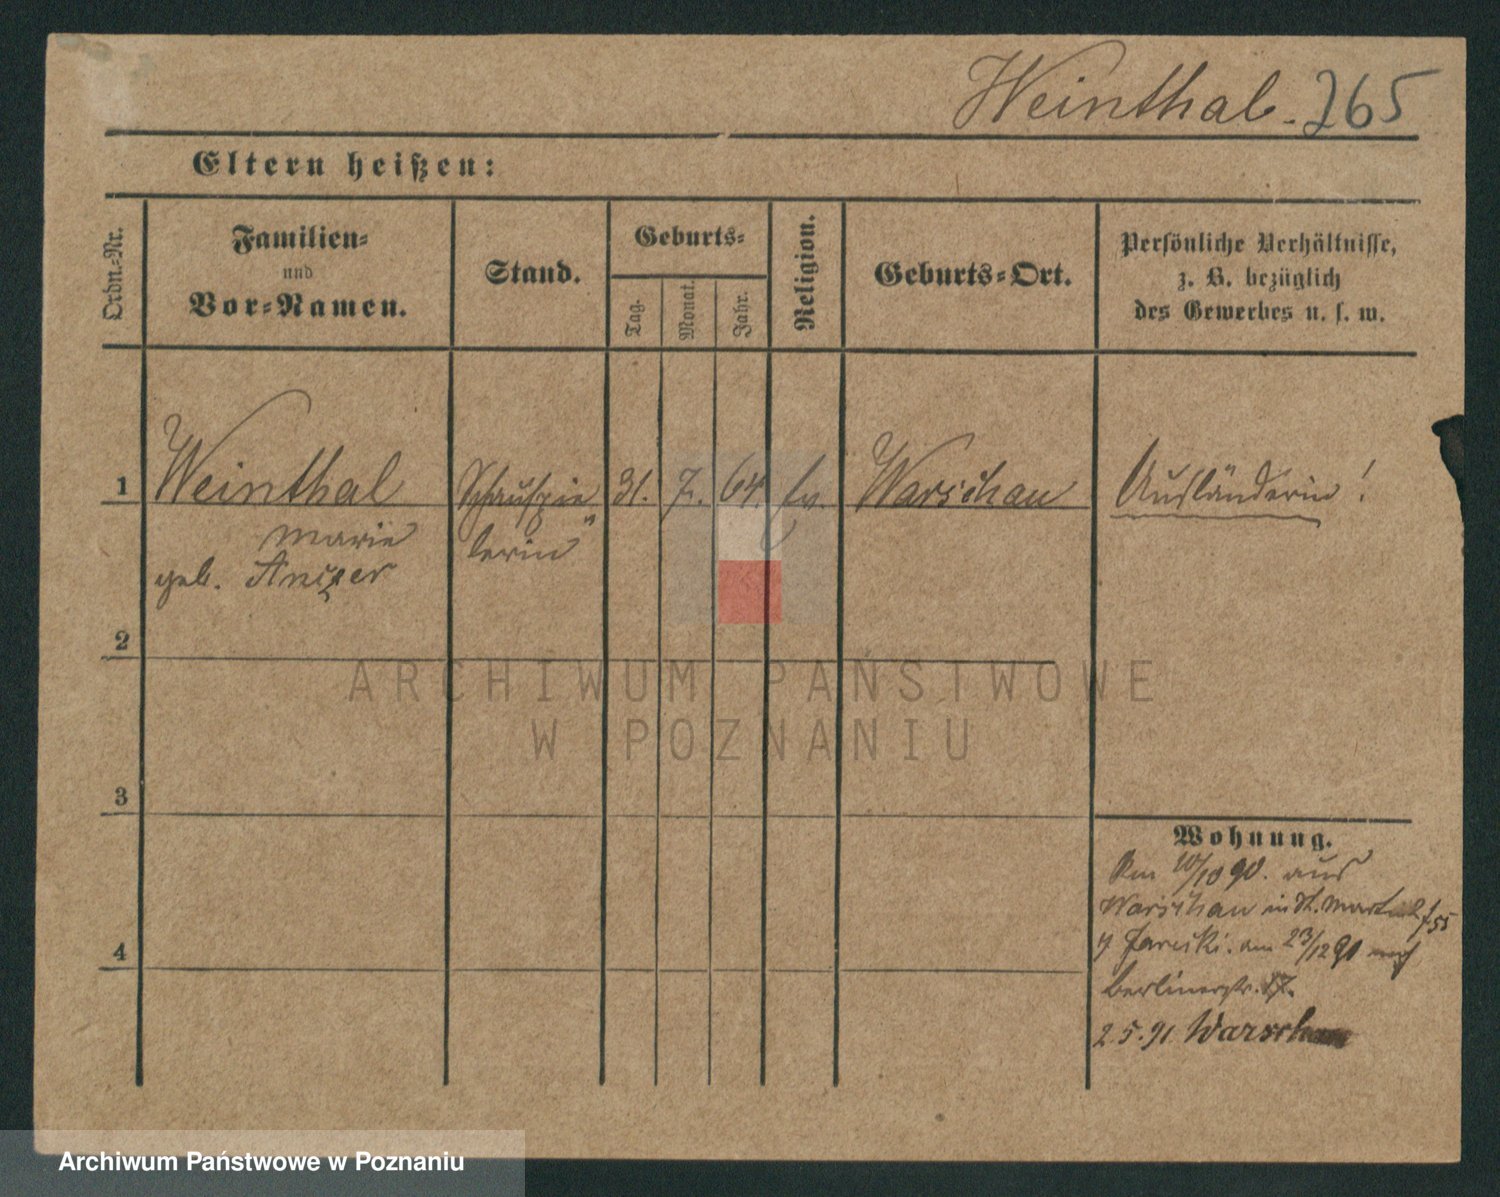 Weinthal. 265
Eltern heißen:
Ordn.-Nr.
Familien-
und
Vor-Namen.
Stand.
Geburts-
Tag.
Monat.
Jahr.
Religion.
Geburts-Ort.
Persönliche Verhältnisse,
z. B. bezüglich
des Gewerbes u. s. w.
1 Weinthal Schauspie 31. 7. 64. Ev. Warschau Ausländerin!
Marie lerin
geb.
2
3
4
Wohnung.
Am 10/10 90. aus
Warschau in St. Martin
am 23/12 90 nach
Berlinerstr. 17.
2.5.91 Warschau
ARCHIWUM PAŃSTWOWE
W POZNANIU
Archiwum Państwowe w Poznaniu